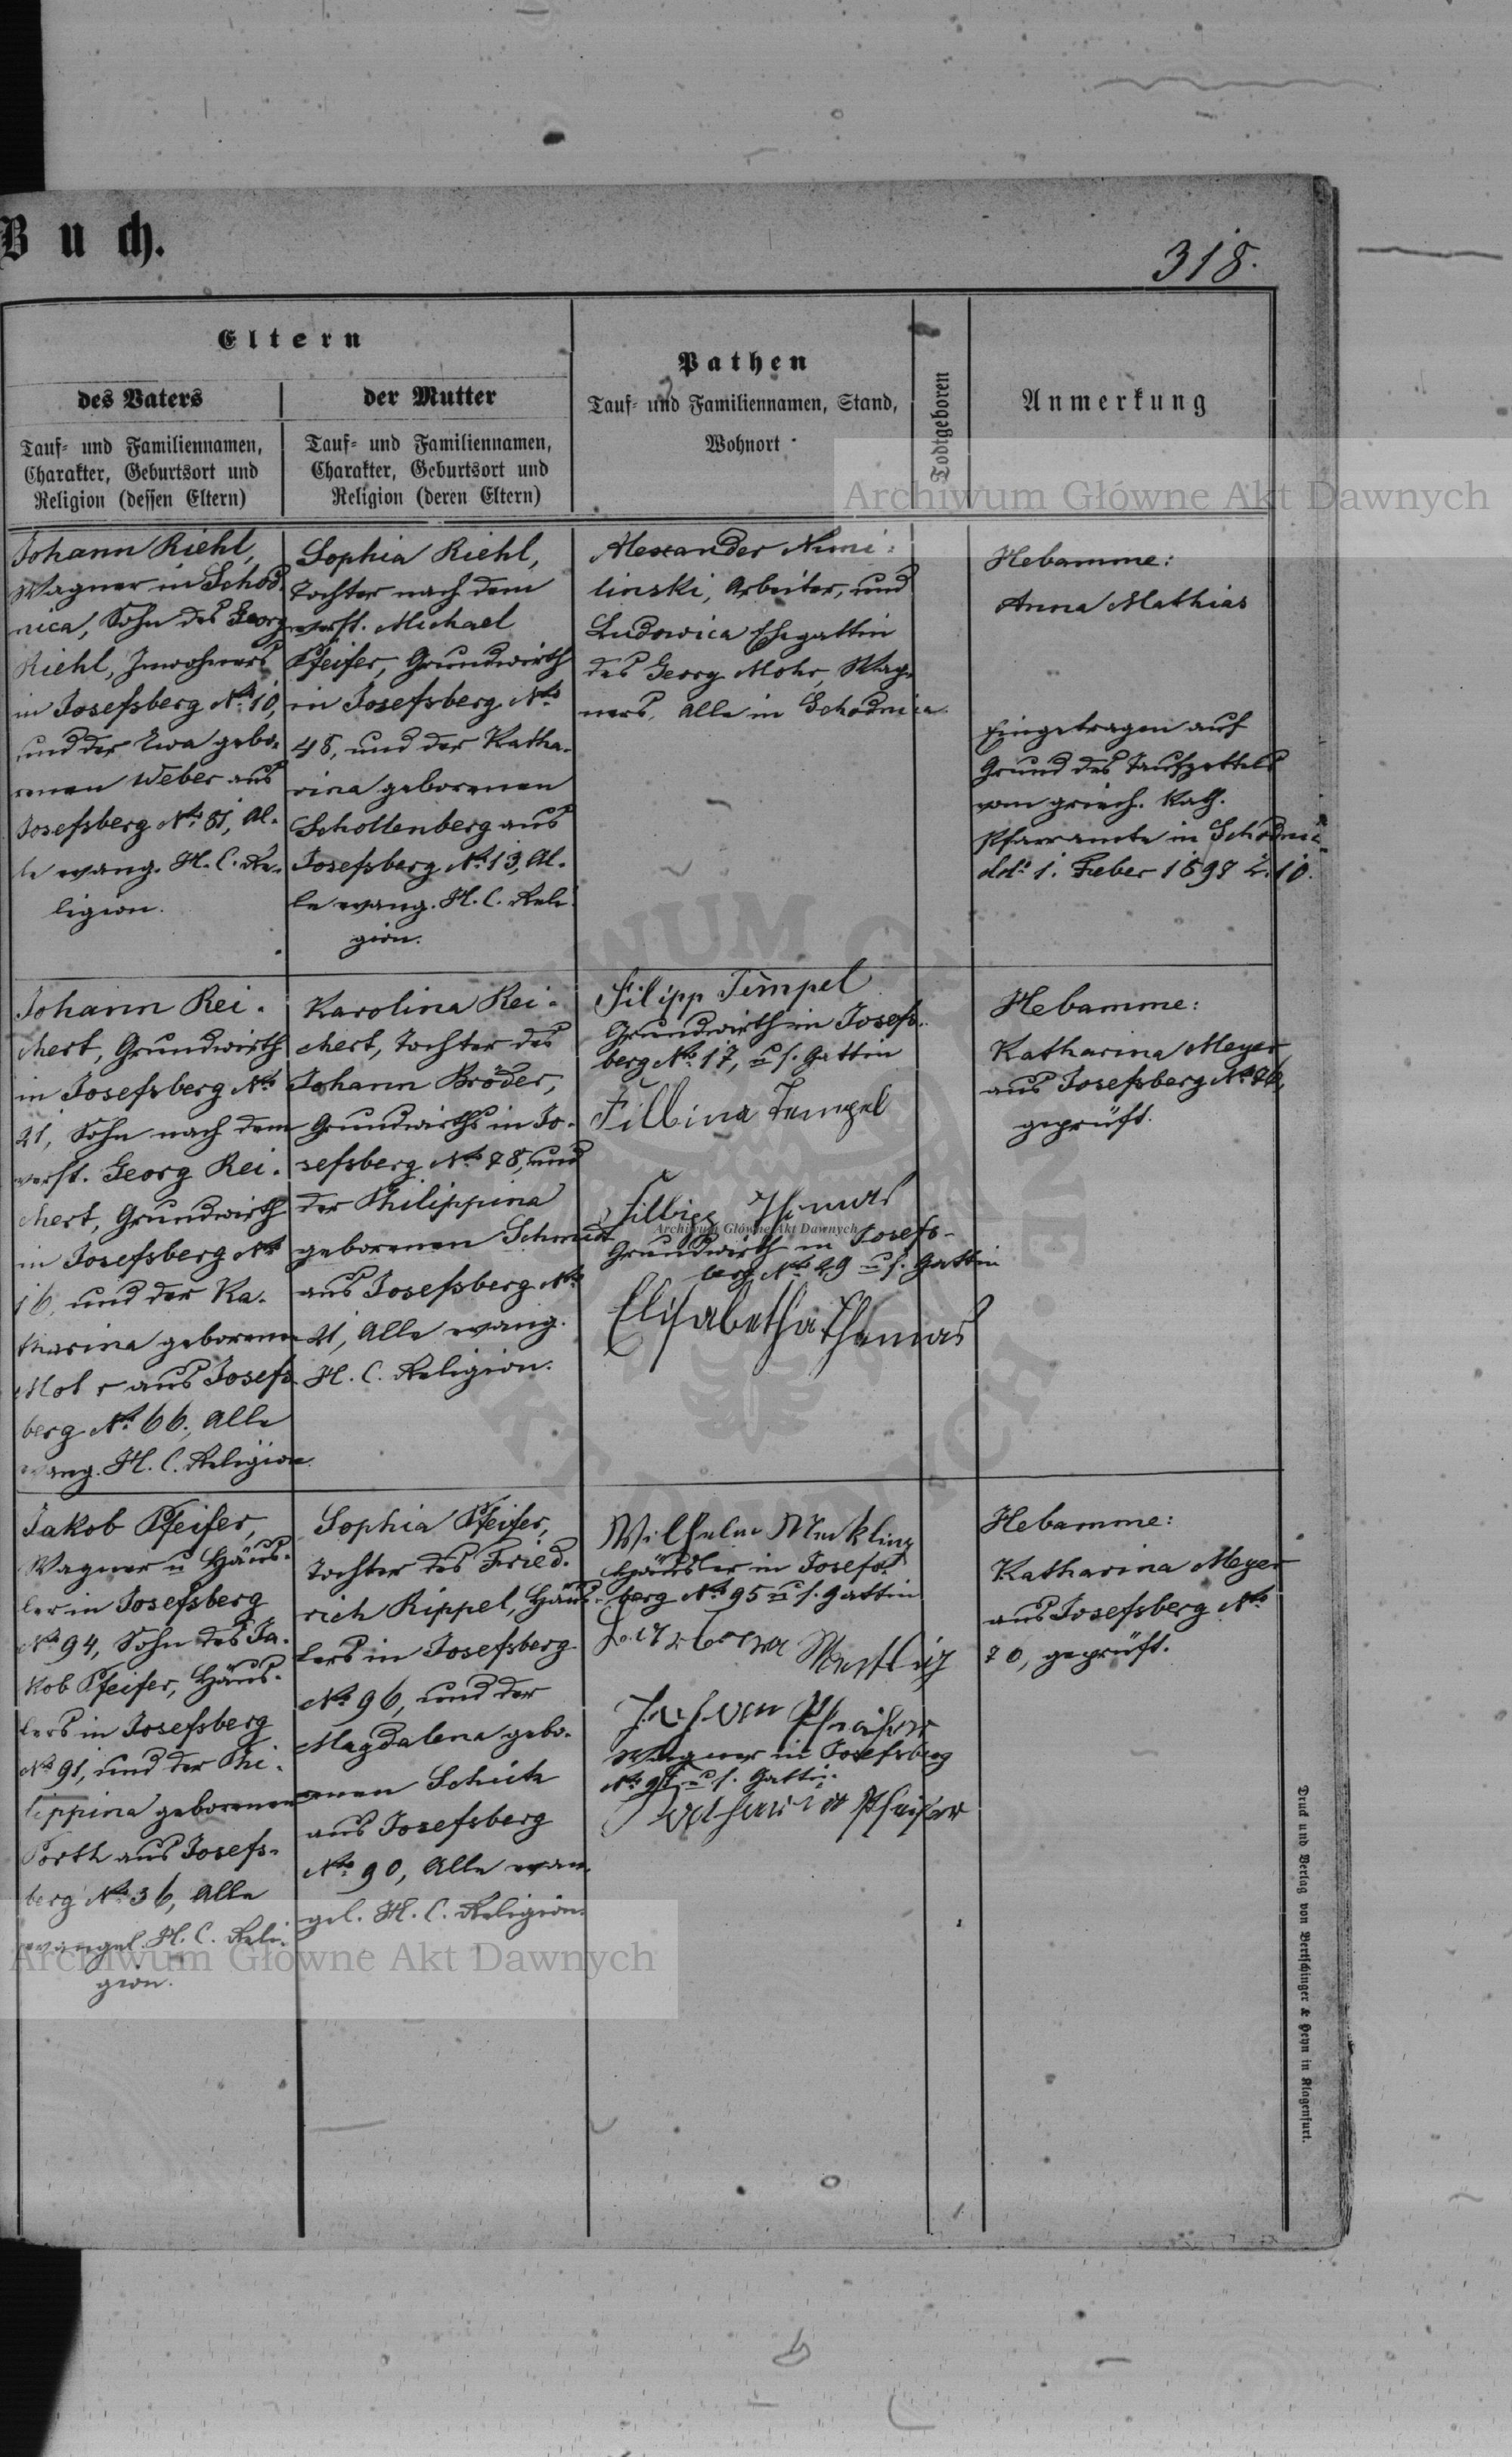 Buch.
318.
Eltern
des Vaters
Tauf- und Familiennamen,
Charakter, Geburtsort und
Religion (dessen Eltern)
der Mutter
Tauf- und Familiennamen,
Charakter, Geburtsort und
Religion (deren Eltern)
Pathen
Tauf- und Familiennamen, Stand,
Wohnort
Todtgeboren
Anmerkung
Archiwum Główne Akt Dawnych
Johann Riehl,
Wagner in Schod-
nica, Sohn des Georg
Riehl, Inwohners
in Josefsberg No. 10,
und der Ewa gebo-
renen Weber aus
Josefsberg No. 81, Al-
le evang. H. C. Re-
ligion.
Sophia Riehl,
Tochter nach dem
verst. Michael
Pfeifer, Grundwirth
in Josefsberg No.
48, und der Katha-
rina geborenen
Schollenberg aus
Josefsberg No. 13, Al-
le evang. H. C. Reli-
gion.
Alexander
linski, Arbeiter, und
Ludowica Ehgattin
des Georg Mohr, Wag-
ners, Alle in Schodnica.
Hebamme:
Anna Mathias
Eingetragen auf
Grund des Taufzettels
vom griech. Kath.
Pfarramte in Schodnica
ddo 1. Feber 1898 Z. 10.
Johann Rei-
chert, Grundwirth
in Josefsberg No.
21, Sohn nach dem
verst. Georg Rei-
chert, Grundwirth
in Josefsberg No.
16, und der Ka-
tharina geborenen
Mohr aus Josefs-
berg No. 66, Alle
evang. H. C. Religion.
Karolina Rei-
chert, Tochter des
Johann Bröder,
Grundwirths in Jo-
sefsberg No. 78, und
der Philippina
geborenen Schmidt
aus Josefsberg No.
21, Alle evang.
H. C. Religion.
Filipp Tempel
Grundwirth in Josefs-
berg No. 17, u s. Gattin
Filbina Tempel
Thomas
Archiwum Główne Akt Dawnych
Grundwirth in Josefs-
berg No. 29 u s. Gattin
Elisabetha Thomas
Hebamme:
Katharina Meyer
aus Josefsberg No. 76,
geprüft.
Jakob Pfeifer,
Wagner u Häus-
ler in Josefsberg
No. 94, Sohn des Ja-
kob Pfeifer, Häus-
lers in Josefsberg
No. 91, und der Phi-
lippina geborenen
Porth aus Josefs-
berg No. 36, Alle
evangel. H. C. Reli-
gion.
Sophia Pfeifer,
Tochter des Fried-
rich Rippel, Häus-
lers in Josefsberg
No. 96, und der
Magdalena gebo-
renen Schick
aus Josefsberg
No. 90, Alle evan-
gel. H. C. Religion.
Wilhelm
Häusler in Josefs-
berg No. 95 u s. Gattin
Pfeifer
Wagner in Josefsberg
u s. Gattin
Katharina Pfeifer
Hebamme:
Katharina Meyer
aus Josefsberg No.
76, geprüft.
Archiwum Główne Akt Dawnych
Druck und Verlag von Bertschinger & Heyn in Klagenfurt.